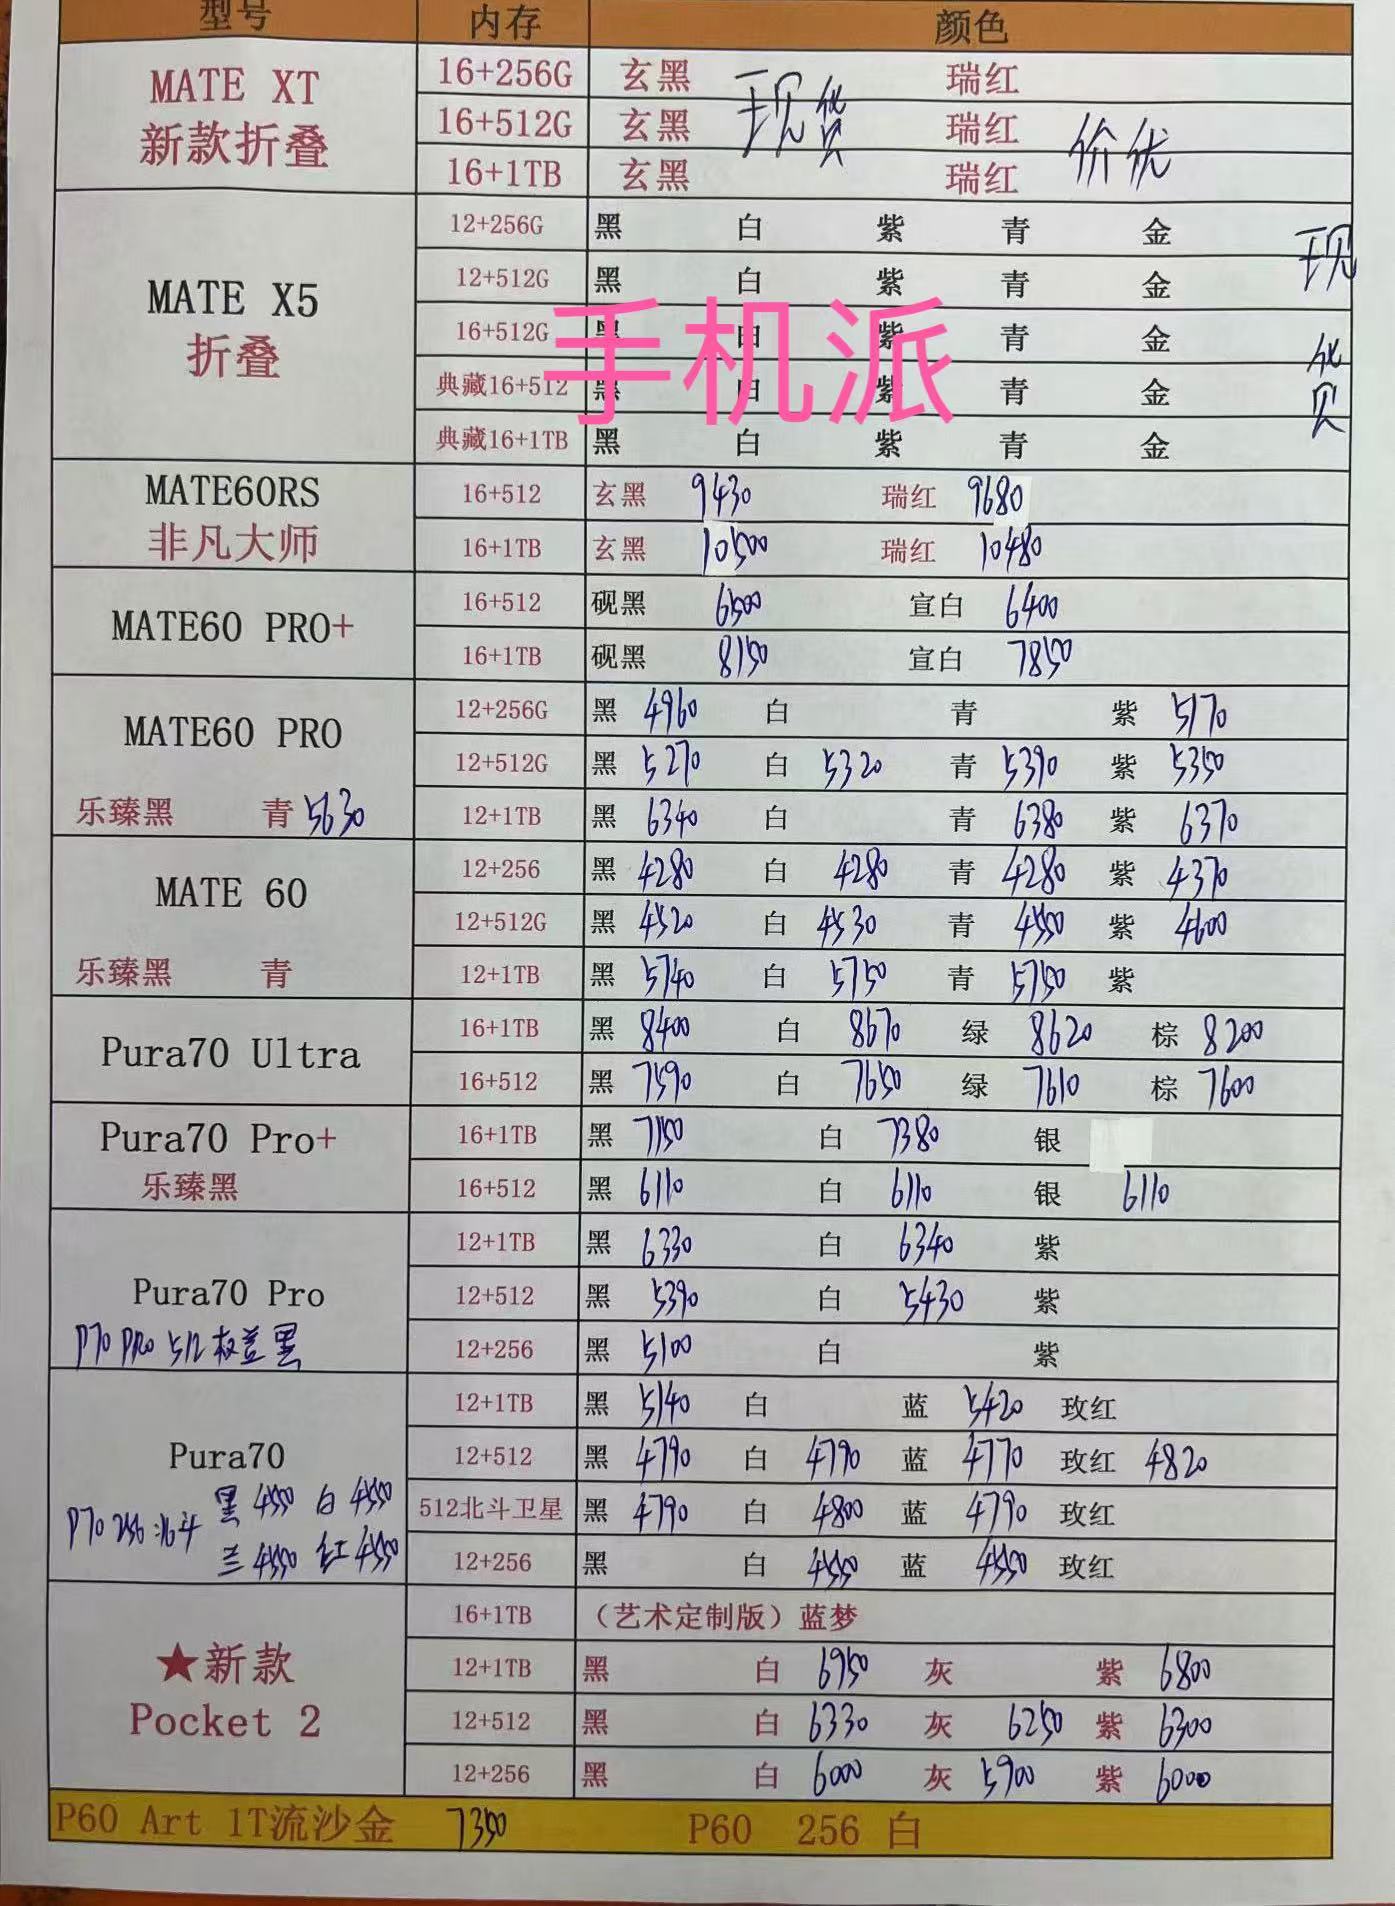 型号 内存 颜色
MATE XT 新款折叠
16+256G 玄黑 瑞红
16+512G 玄黑 现货 瑞红 价优
16+1TB 玄黑 瑞红
MATE X5 折叠
12+256G 黑 白 紫 青 金
12+512G 黑 白 紫 青 金
16+512G 黑 白 紫 青 金
典藏16+512 黑 白 紫 青 金
典藏16+1TB 黑 白 紫 青 金
现货
手机派
MATE60RS 非凡大师
16+512 玄黑 9430 瑞红 9680
16+1TB 玄黑 10500 瑞红 10480
MATE60 PRO+
16+512 砚黑 6500 宣白 6400
16+1TB 砚黑 8150 宣白 7850
MATE60 PRO
12+256G 黑 4960 白 青 紫 5170
12+512G 黑 5270 白 5320 青 5390 紫 5350
乐臻黑 青 5630
12+1TB 黑 6340 白 青 6380 紫 6370
MATE 60
12+256 黑 4280 白 4280 青 4280 紫 4370
12+512G 黑 4520 白 4530 青 4550 紫 4600
乐臻黑 青
12+1TB 黑 5740 白 5750 青 5750 紫
Pura70 Ultra
16+1TB 黑 8400 白 8670 绿 8620 棕 8200
16+512 黑 7590 白 7650 绿 7610 棕 7600
Pura70 Pro+
乐臻黑
16+1TB 黑 7150 白 7380 银
16+512 黑 6110 白 6110 银 6110
Pura70 Pro
12+1TB 黑 6330 白 6340 紫
12+512 黑 5390 白 5430 紫
P70 PRO 512 黑
12+256 黑 5100 白 紫
Pura70
12+1TB 黑 5140 白 蓝 5420 玫红
12+512 黑 4790 白 4790 蓝 4770 玫红 4820
P70 256 北斗 黑 4550 白 4550
兰 4550 红 4550
512北斗卫星 黑 4790 白 4800 蓝 4790 玫红
12+256 黑 白 4550 蓝 4550 玫红
★新款 Pocket 2
16+1TB （艺术定制版）蓝梦
12+1TB 黑 白 6950 灰 紫 6800
12+512 黑 白 6330 灰 6250 紫 6300
12+256 黑 白 6000 灰 5900 紫 6000
P60 Art 1T流沙金 7350 P60 256 白